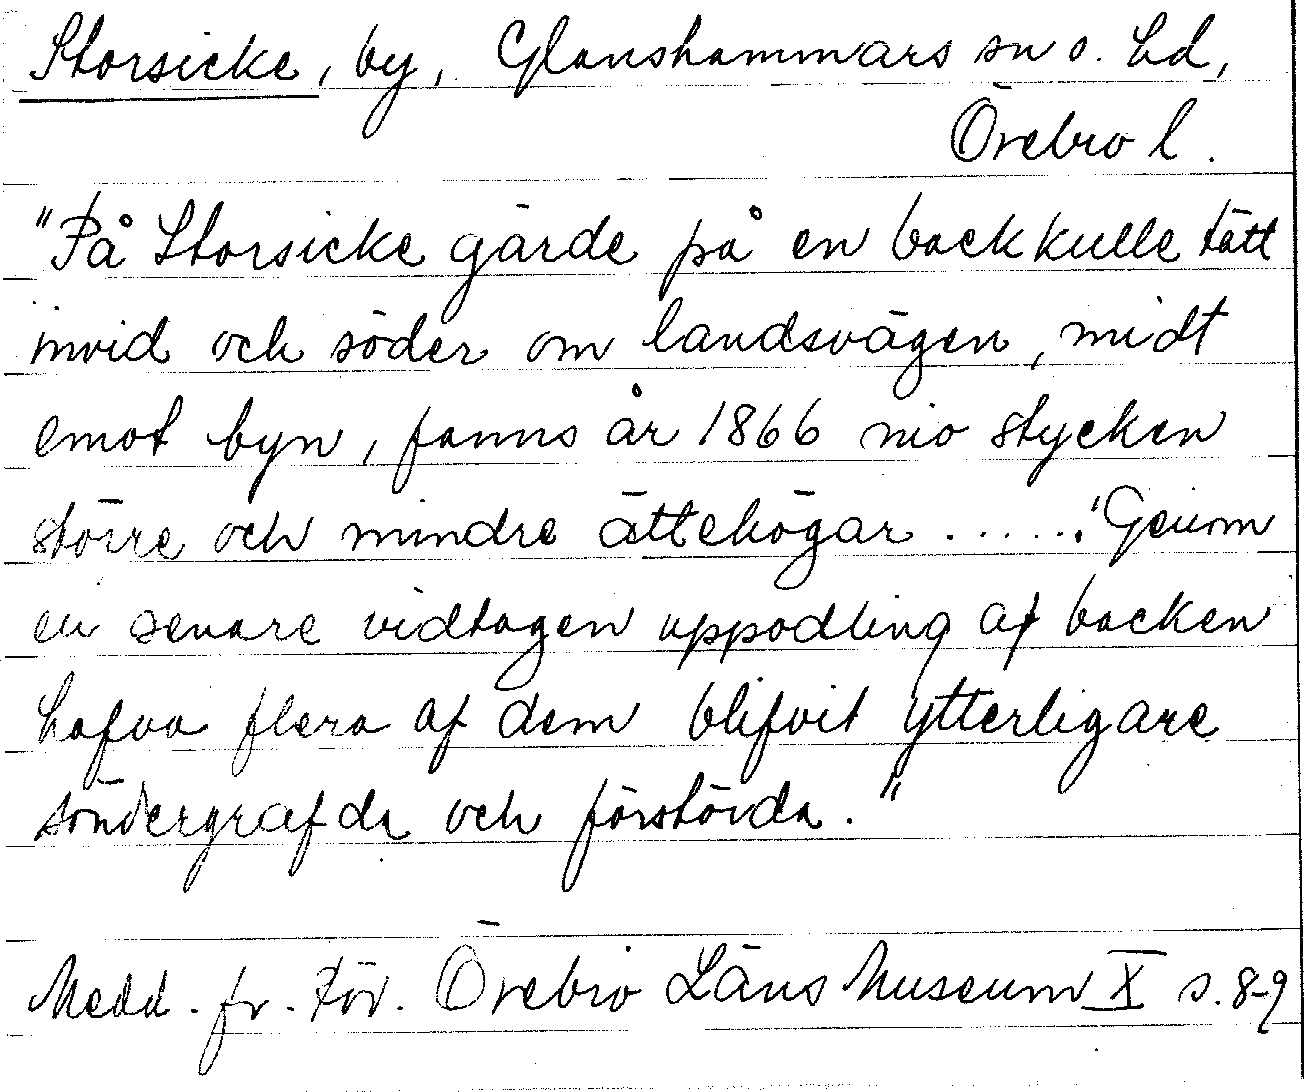 Storsicke, by, Glanshammars sn o. hd,
Örebro l.
"På Storsicke gärde på en backkulle tätt
invid och söder om landsvägen, midt
emot byn, fanns år 1866 nio stycken
större och mindre ättehögar ...... "Genom
en senare vidtagen uppodling af backen
hafva flera af dem blifvit ytterligare
söndergrafda och förstörda."
Medd. fr. För. Örebro Läns Museum X s. 8-9